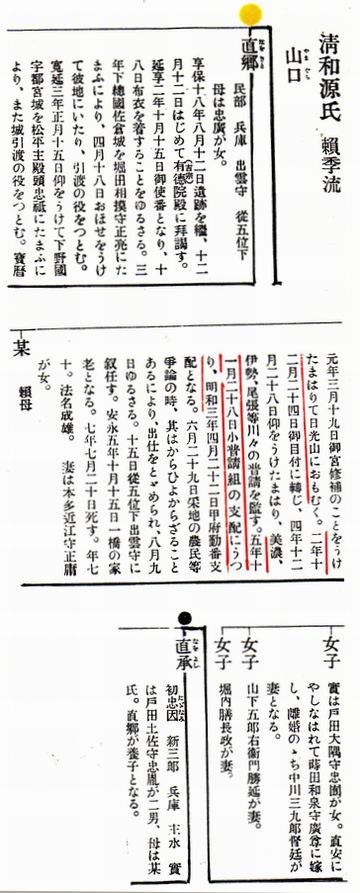 清和源氏 頼季流
山口
直郷
民部 兵庫 出雲守 従五位下
母は忠廣が女。
享保十八年八月十二日遺跡を繼、十二
月十二日はじめて有德院殿に拜謁す。
延享二年十月十五日御使番となり、十
八日布衣を着することをゆるさる。三
年下總國佐倉城を堀田相摸守正亮にた
まふにより、四月十八日おほせをうけ
て彼地にいたり、引渡の役をつとむ。
寬延三年正月十五日仰をうけて下野國
宇都宮城を松平主殿頭忠祗にたまふに
より、また城引渡の役をつとむ。寶曆
元年三月十九日御宮修補のことをうけ
たまはりて日光山におもむく。二年十
二月二十四日御目付に轉じ、四年十二
月二十八日仰をうけたまはり、美濃、
伊勢、尾張等川々の普請を監す。五年十
一月二十八日小普請組の支配にうつ
り、明和三年四月二十二日甲府勤番支
配となる。六月二十九日采地の農民等
爭論の時、其はからひよからざること
あるにより、出仕をとゞめられ、八月九
日ゆるさる。十五日從五位下出雲守に
叙任す。安永五年十月十五日一橋の家
老となる。七年七月二十日死す。年七
十。法名成雄。 妻は本多近江守正庸
が女。
某
賴母
女子
實は戸田大隅守忠囿が女。直安に
やしなはれて蒔田和泉守廣尊に嫁
し、離婚のゝち中川三九郎督廷が
妻となる。
女子
山下五郎右衞門勝延が妻。
女子
堀内膳長政が妻。
直承
初忠因 新三郎 兵庫 主水 實
は戸田土佐守忠胤が二男、母は某
氏。直郷が養子となる。